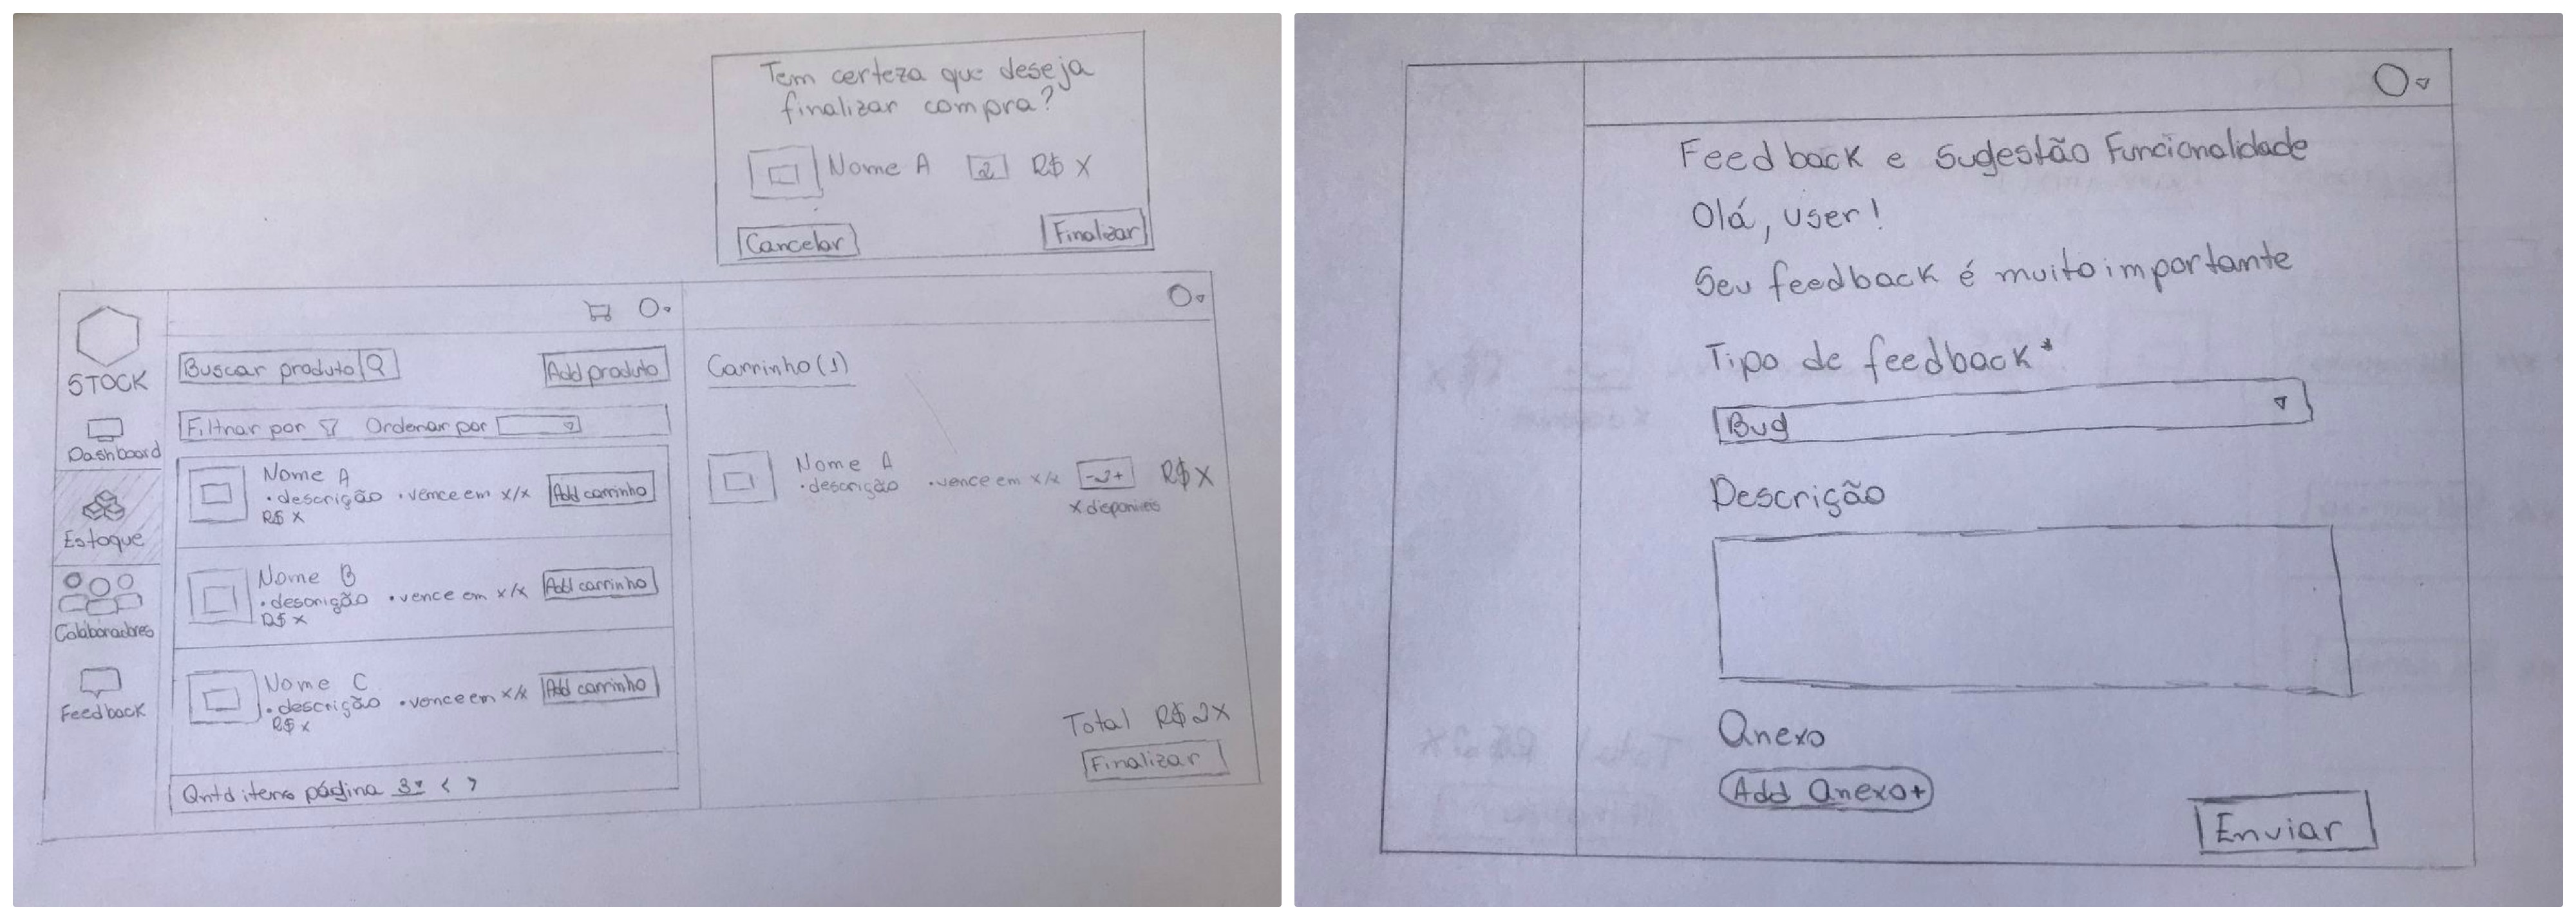 Tem certeza que deseja
finalizar compra?
Nome A 2 R$ X
Cancelar
Finalizar
STOCK
Dashboard
Estoque
Colaboradores
Feedback
Buscar produto
Add produto
Filtrar por Ordenar por
Nome A
• descrição • vence em x/x Add carrinho
R$ X
Nome B
• descrição • vence em x/x Add carrinho
R$ X
Nome C
• descrição • vence em x/x Add carrinho
R$ X
Qntd itens página 3 < >
Carrinho (1)
Nome A
• descrição • vence em x/x - 2 + R$ X
X disponíveis
Total R$ 2X
Finalizar
Feedback e Sugestão Funcionalidade
Olá, user!
Seu feedback é muito importante
Tipo de feedback*
Bug
Descrição
Anexo
Add Anexo+
Enviar